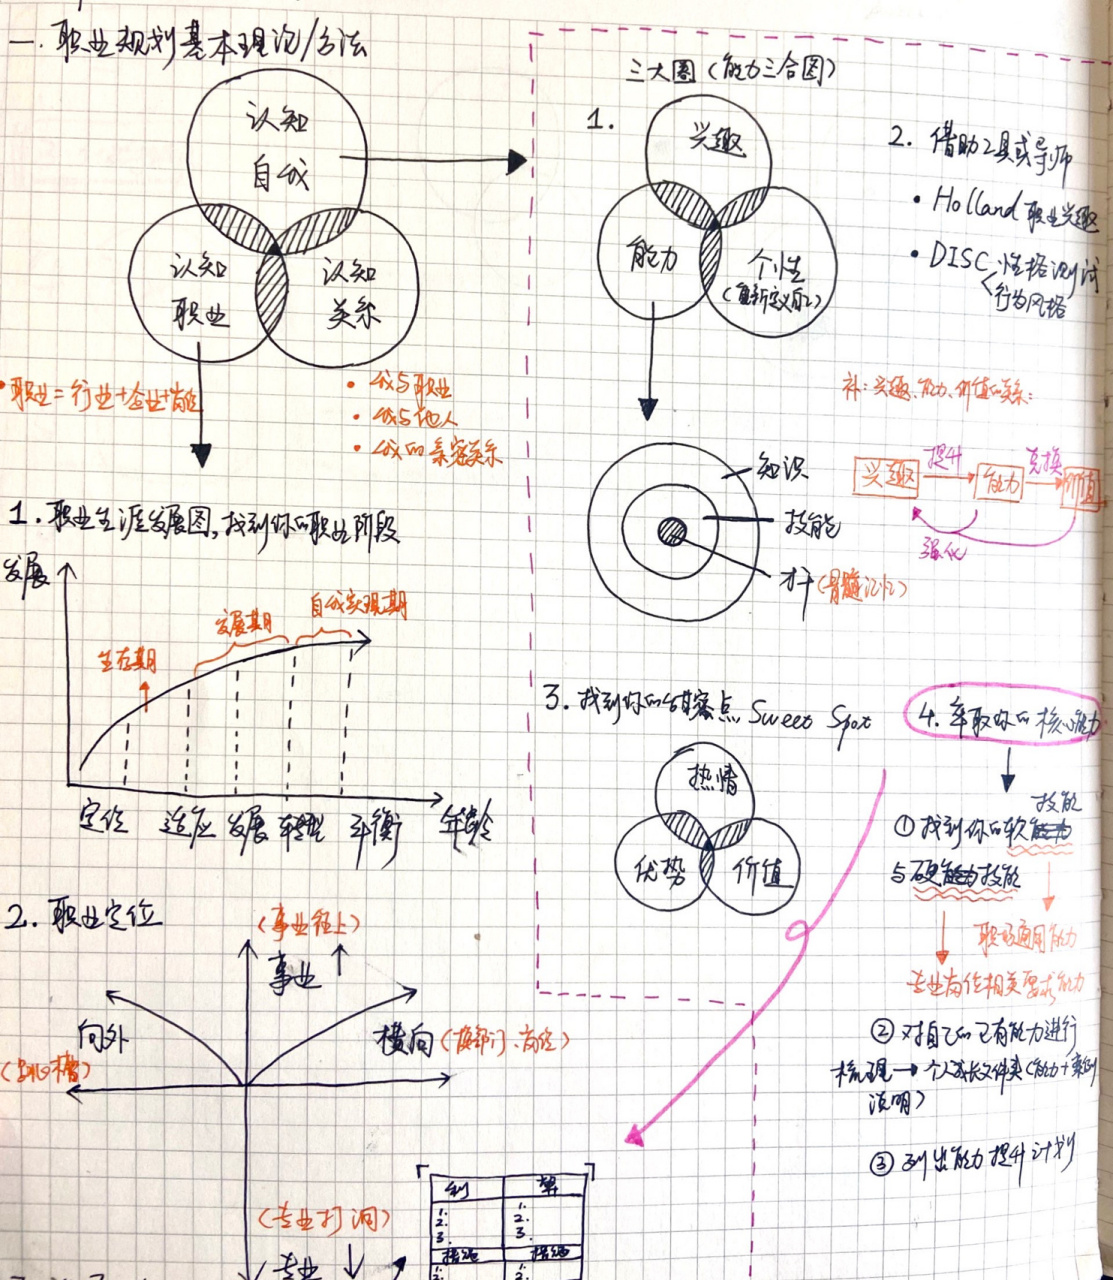 一. 职业规划基本理论/方法
认知
自我
认知
职业
认知
关系
职业=行业+企业+岗位
• 我与职业
• 我与他人
• 我的亲密关系
1. 职业生涯发展图,找到你的职业阶段
发展
生存期
发展期
自我实现期
定位 适应 发展 转型 平衡 年龄
2. 职业定位
(事业往上)
事业
向外
横向(换部门、岗位)
(专业打洞)
专业
利
弊
1.
2.
3.
1.
2.
3.
措施
措施
1.
2.
1.
2.
三大圈(能力三合图)
1.
兴趣
能力
个性
(重新定义自己)
2. 借助工具或导师
• Holland 职业兴趣
• DISC 性格测试
行为风格
知识
技能
才干(骨髓记忆)
补: 兴趣、能力、价值的关系:
兴趣
提升
能力
兑换
价值
强化
3. 找到你的甜蜜点 Sweet Spot
热情
优势
价值
4. 萃取你的核心能力
技能
① 找到你的软能力
与硬能力技能
职场通用能力
专业岗位相关要求能力
② 对自己的已有能力进行
梳理→个人成长文件夹(能力+案例
说明)
③ 列出能力提升计划